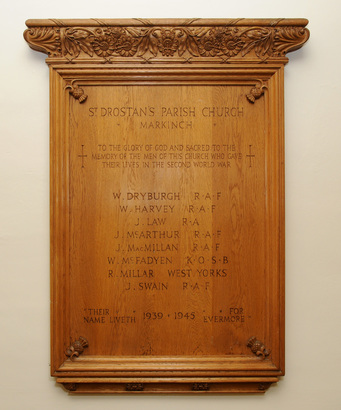 ST DROSTAN'S PARISH CHURCH
· MARKINCH ·
TO THE GLORY OF GOD AND SACRED TO THE
MEMORY OF THE MEN OF THIS CHURCH WHO GAVE
THEIR LIVES IN THE SECOND WORLD WAR
W. DRYBURGH R·A·F
W. HARVEY R·A·F
J. LAW R·A
J. McARTHUR R·A·F
J. MacMILLAN R·A·F
W. McFADYEN K·O·S·B
R. MILLAR WEST YORKS
J. SWAIN R·A·F
"THEIR · · 1939 · 1945 · · FOR
NAME LIVETH EVERMORE"